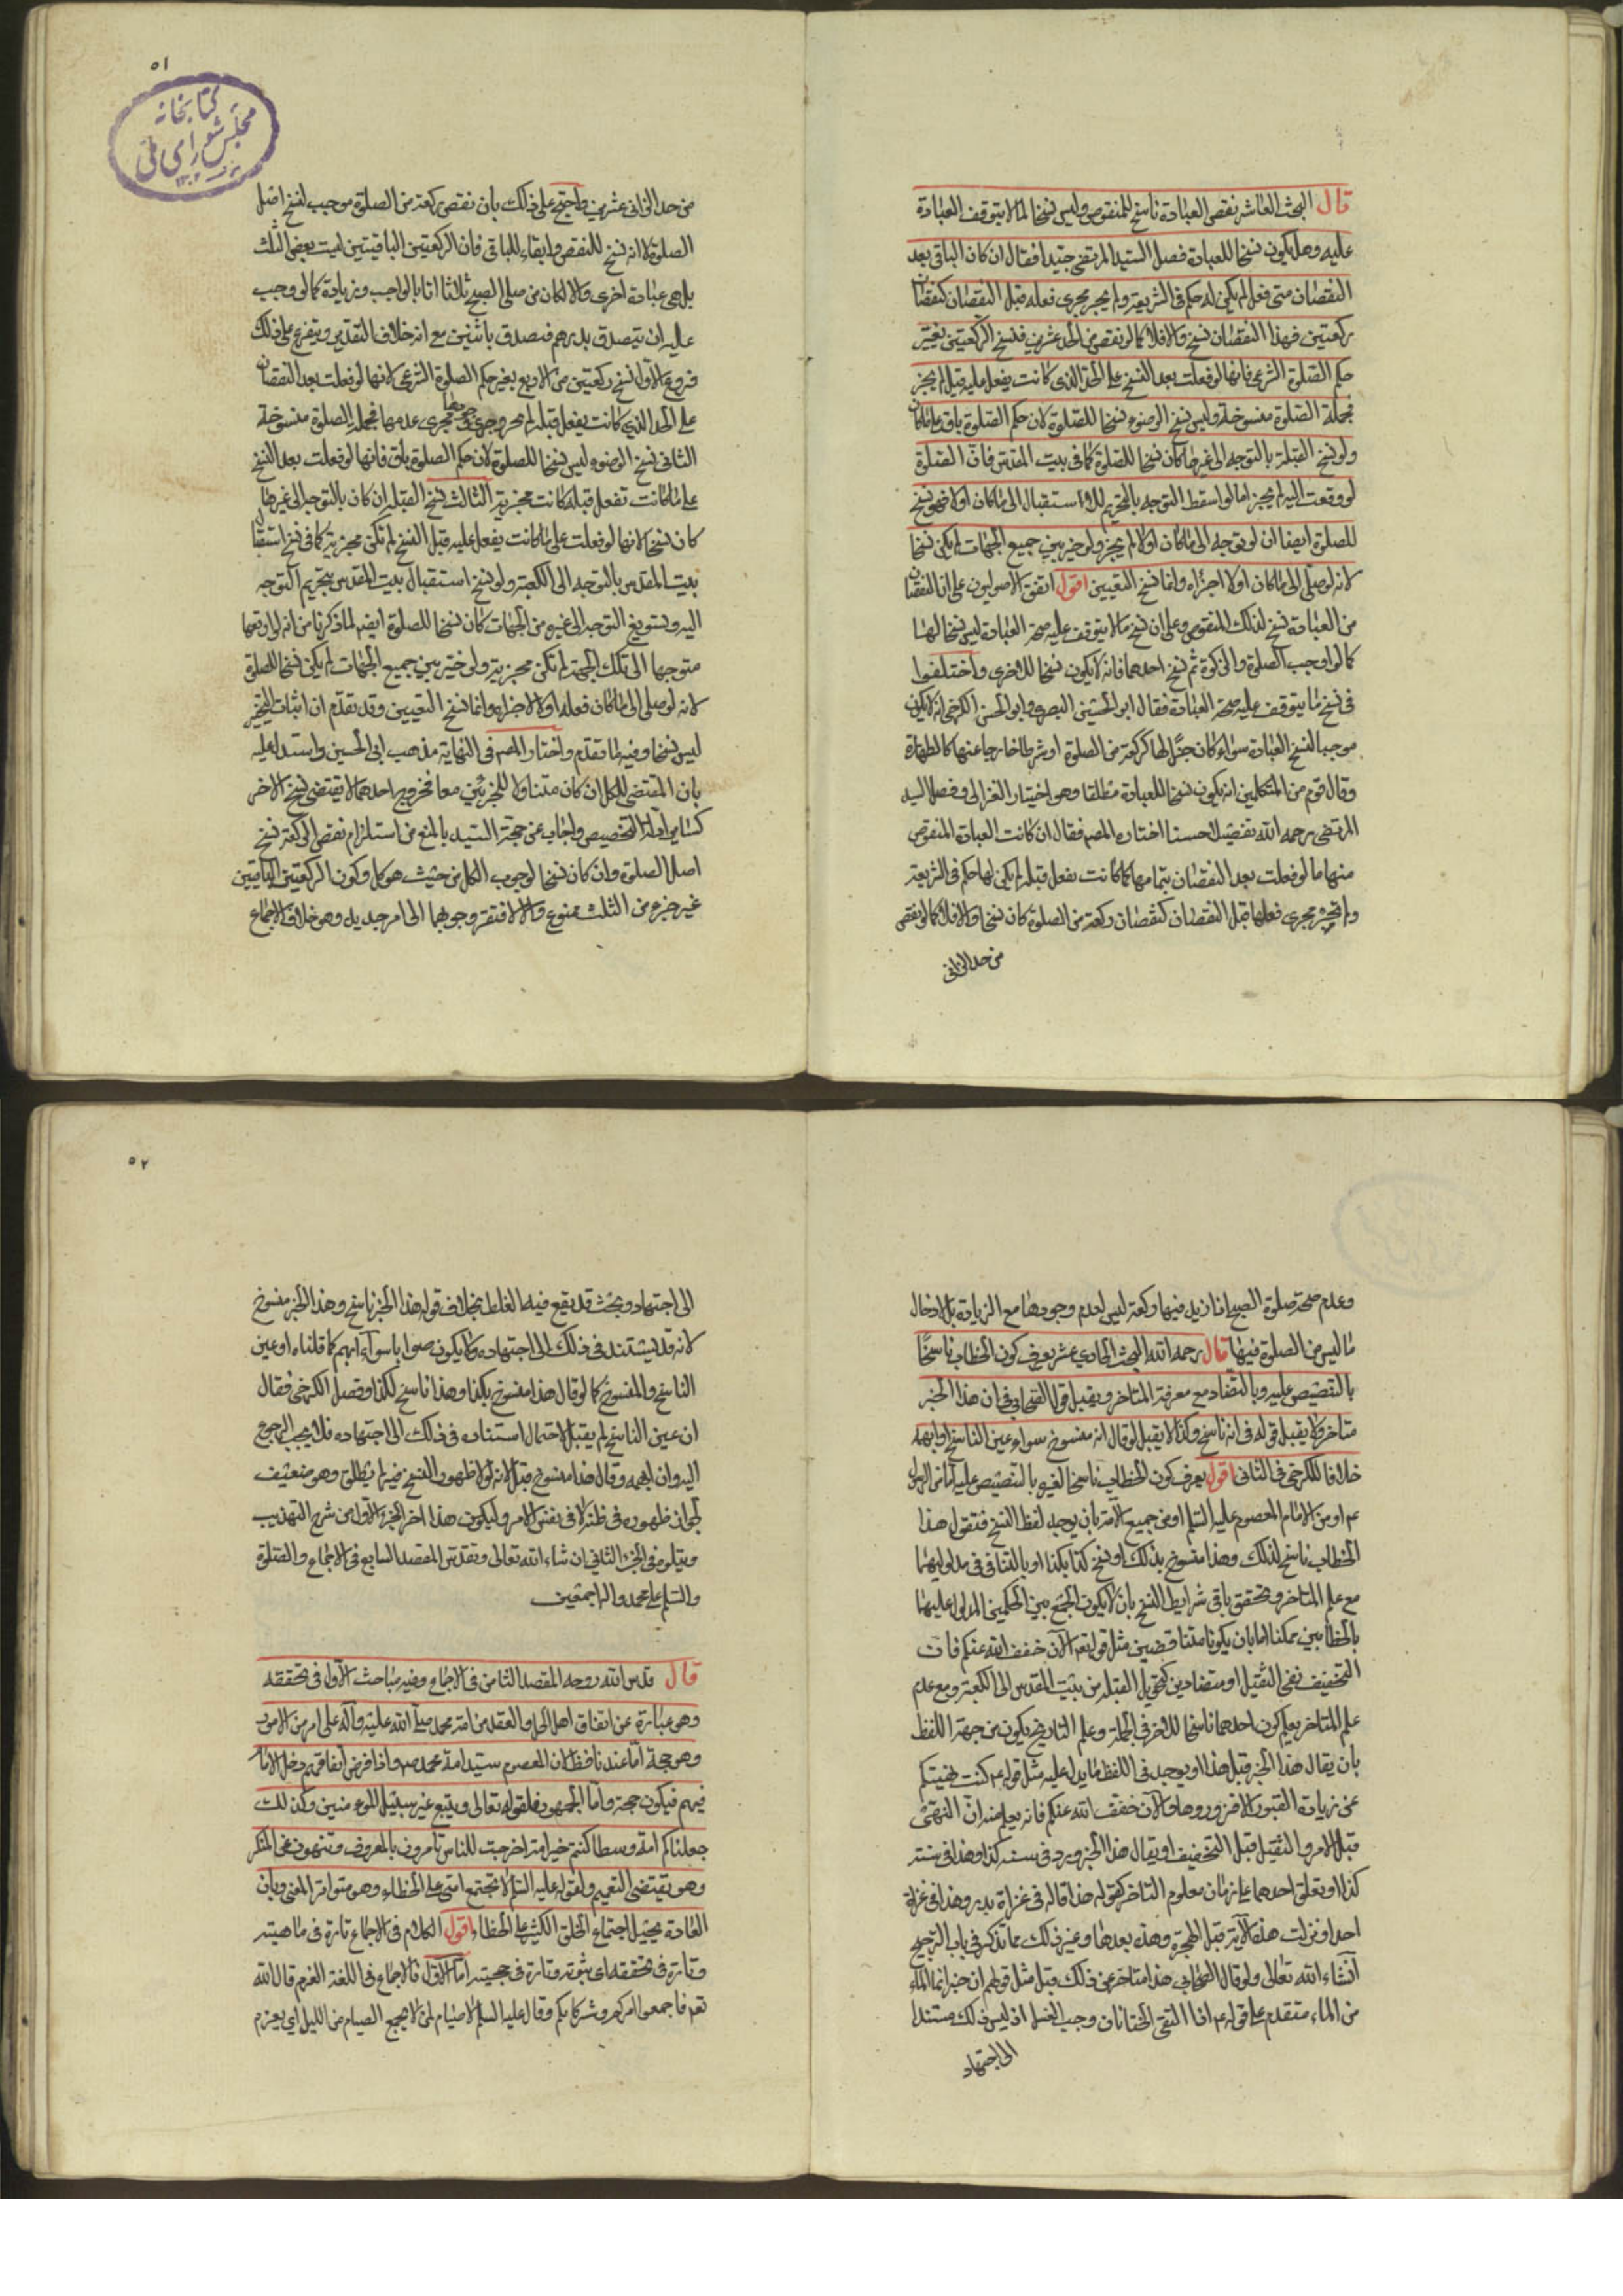 قال البحث العاشر نقص العبادة ناسخ للمنقوص وليس نسخا لما لا يتوقف العبادة
عليه وهل يكون نسخا للعبادة فصل السيد المرتضى جيدا فقال ان كان الباقي بعد
النقصان متى فعل لم يكن له حكم في الشريعة ولم يجر مجرى فعله قبل النقصان كنقصان
ركعتين فهذا النقصان نسخ والا فلا كما لو نقص من الحد عشرين فنسخ الركعتين يغير
حكم الصلوة الشرعي فانها لو فعلت بعد النسخ على الحد الذي كانت يفعل عليه قبل لم يجز
فجملة الصلوة منسوخة وليس نسخ الوضوء نسخا للصلوة لان حكم الصلوة باق على ما كان
ولو نسخ القبلة بالتوجه الى غيرها كان نسخا للصلوة كما في بيت المقدس فان الصلوة
لو وقعت اليه لم يجز اما لو اسقط التوجه بالتحريم للاستقبال الى ما كان اولا فهو نسخ
للصلوة ايضا ان لو توجه الى ما كان اولا لم يجز ولو خير بين جميع الجهات لم يكن نسخا
لانه لو صلى الى ما كان اولا اجزاه وانما نسخ التعيين اقول اتفق الاصوليون على ان النقصان
من العبادة نسخ لذلك المنقوص وعلى ان نسخ ما لا يتوقف عليه صحة العبادة ليس نسخا لها
كما لو اوجب الصلوة والزكوة ثم نسخ احدهما فانه لا يكون نسخا للاخرى واختلفوا
في نسخ ما يتوقف عليه صحة العبادة فقال ابو الحسين البصري وابو الحسن الكرخي انه لا يكون
موجبا لنسخ العبادة سواء كان جزءا لها كركعة من الصلوة او شرطا خارجا عنها كالطهارة
وقال قوم من المتكلمين انه يكون نسخا للعبادة مطلقا وهو اختيار الغزالي وفصل السيد
المرتضى رحمه الله تفصيلا حسنا اختاره المص فقال ان كانت العبادة المنقوص
منها ما لو فعلت بعد النقصان بتمامها كما كانت يفعل قبله لم يكن لها حكم في الشريعة
ولم تجر مجرى فعلها قبل النقصان كنقصان ركعة من الصلوة كان نسخا والا فلا كما لو نقص
من حد الزاني
٥١
كتابخانه
مجلس شوراى ملى
من حد الزاني عشرين واحتج على ذلك بان نقص ركعة من الصلوة موجب لنسخ اصل
الصلوة لا انه نسخ للنقص وابقاء للباقي فان الركعتين الباقيتين ليست بعض الثلث
بل هي عبادة اخرى والا لكان من صلى الصبح ثلاثا اتيا بالواجب وزيادة كما لو وجب
عليه ان يتصدق بدرهم فتصدق باثنين مع انه خلاف التقدير ويتفرع على ذلك
فروع الاول نسخ ركعتين من الاربع يغير حكم الصلوة الشرعي لانها لو فعلت بعد النقصان
على الحد الذي كانت يفعل قبله لم يجز وجرى مجرى عدمها فجملة الصلوة منسوخة
الثاني نسخ الوضوء ليس نسخا للصلوة لان حكم الصلوة باق فانها لو فعلت بعد النسخ
على ما كانت تفعل قبله كانت مجزية الثالث نسخ القبلة ان كان بالتوجه الى غيرها
كان نسخا لانها لو فعلت على ما كانت يفعل عليه قبل النسخ لم تكن مجزية كما في نسخ استقبال
بيت المقدس بالتوجه الى الكعبة ولو نسخ استقبال بيت المقدس بتحريم التوجه
اليه وتسويغ التوجه الى غيره من الجهات كان نسخا للصلوة ايضا لما ذكرنا من انه لو اوقعها
متوجها الى تلك الجهة لم تكن مجزية ولو خير بين جميع الجهات لم يكن نسخا للصلوة
لانه لو صلى الى ما كان فعله اولا لاجزاه وانما نسخ التعيين وقد تقدم ان اثبات التخيير
ليس نسخا وفيه ما تقدم واختار المص في النهاية مذهب ابي الحسين واستدل عليه
بان المقتضي للكل ان كان متناولا للجزئين معا فخروج احدهما لا يقتضي نسخ الاخر
كساير ادلة التخصيص واجاب عن حجة السيد بالمنع من استلزام نقص الركعة نسخ
اصل الصلوة وان كان نسخا لوجوب الكل من حيث هو كل وكون الركعتين الباقيتين
غير جزء من الثلث ممنوع والا لافتقر وجوبهما الى امر جديد وهو خلاف الاجماع
وعدم صحة صلوة الصبح اذا زيد فيها ركعة ليس لعدم وجودها مع الزيادة بل لادخال
ما ليس من الصلوة فيها قال رحمه الله البحث الحادي عشر يعرف كون الخطاب ناسخا
بالتنصيص عليه وبالتضاد مع معرفة المتاخر ويقبل قول الصحابي في ان هذا الخبر
متاخر ولا يقبل قوله في انه ناسخ وكذا لا يقبل لو قال انه منسوخ سواء عين الناسخ او ابهمه
خلافا للكرخي في الثاني اقول يعرف كون الخطاب ناسخا لغيره بالتنصيص عليه اما من الرسول
عم او من الامام المعصوم عليه السلم او من جميع الامة بان يوجد لفظ النسخ فتقول هذا
الخطاب ناسخ لذلك وهذا منسوخ بذلك او نسخ كذا بكذا او بالتنافي في مدلوليهما
مع علم المتاخر وتحقق باقي شرايط النسخ بان لا يكون الجمع بين الحكمين المدلول عليهما
بالخطابين ممكنا اما بان يكونا متناقضين مثل قوله تعم الان خفف الله عنكم فان
التخفيف نفي التثقيل او متضادين كتحويل القبلة من بيت المقدس الى الكعبة ومع عدم
علم المتاخر يعلم كون احدهما ناسخا للاخر في الجملة وعلم التاريخ يكون من جهة اللفظ
بان يقال هذا الخبر قبل هذا او يوجد في اللفظ ما يدل عليه مثل قوله عم كنت نهيتكم
عن زيارة القبور الا فزوروها والان خفف الله عنكم فانه يعلم منه ان النهي
قبل الامر والتثقيل قبل التخفيف او يقال هذا الخبر ورد في سنة كذا وهذا في سنة
كذا او تعلق احدهما على زمان معلوم التاخر كقوله هذا قاله في غزاة بدر وهذا في غزاة
احد او نزلت هذه الاية قبل الهجرة وهذه بعدها وغير ذلك مما تذكر في باب الترجيح
انشاء الله تعالى ولو قال الصحابي هذا متاخر عن ذلك قبل مثل قولهم ان خبر انما الماء
من الماء متقدم على قوله عم اذا التقى الختانان وجب الغسل اذ ليس ذلك مستندا
الى اجتهاد
٥٢
الى اجتهاد وبحث قد يقع فيه الغلط بخلاف قوله هذا الخبر ناسخ وهذا الخبر منسوخ
لانه قد يستند في ذلك الى اجتهاده ولا يكون صوابا سواء ابهم كما قلناه او عين
الناسخ والمنسوخ كما لو قال هذا منسوخ بكذا وهذا ناسخ لكذا وفصل الكرخي فقال
ان عين الناسخ لم يقبل لاحتمال استناده في ذلك الى اجتهاده فلا يجب الرجوع
اليه وان ابهمه وقال هذا منسوخ قبل لانه لولا ظهور النسخ فيه لم يطلق وهو ضعيف
لجواز ظهوره في ظنه لا في نفس الامر وليكون هذا اخر الجزء الاول من شرح التهذيب
ويتلوه في الجزء الثاني ان شاء الله تعالى وتقدس المقصد السابع في الاجماع والصلوة
والسلم على محمد واله اجمعين
قال قدس الله روحه المقصد الثامن في الاجماع وفيه مباحث الاول في تحققه
وهو عبارة عن اتفاق اهل الحل والعقد من امة محمد صلى الله عليه وآله على امر من الامور
وهو حجة اما عندنا فظ لان المعصوم سيد امة محمد ص واذا فرض اتفاقهم دخل الامام
فيهم فيكون حجة واما الجمهور فلقوله تعالى ويتبع غير سبيل المؤمنين وكذلك
جعلناكم امة وسطا كنتم خير امة اخرجت للناس تامرون بالمعروف وتنهون عن المنكر
وهو يقتضي التعميم ولقوله عليه السلم لا تجتمع امتي على الخطاء وهو متواتر المعنى وبان
العادة تحيل اجتماع الخلق الكثير على الخطاء اقول الكلام في الاجماع تارة في ماهيته
وتارة في تحققه اي ثبوته وتارة في حجيته اما الاول فالاجماع في اللغة العزم قال الله
تعم فاجمعوا امركم وشركاءكم وقال عليه السلم لا صيام لمن لا يجمع الصيام من الليل اي يعزم